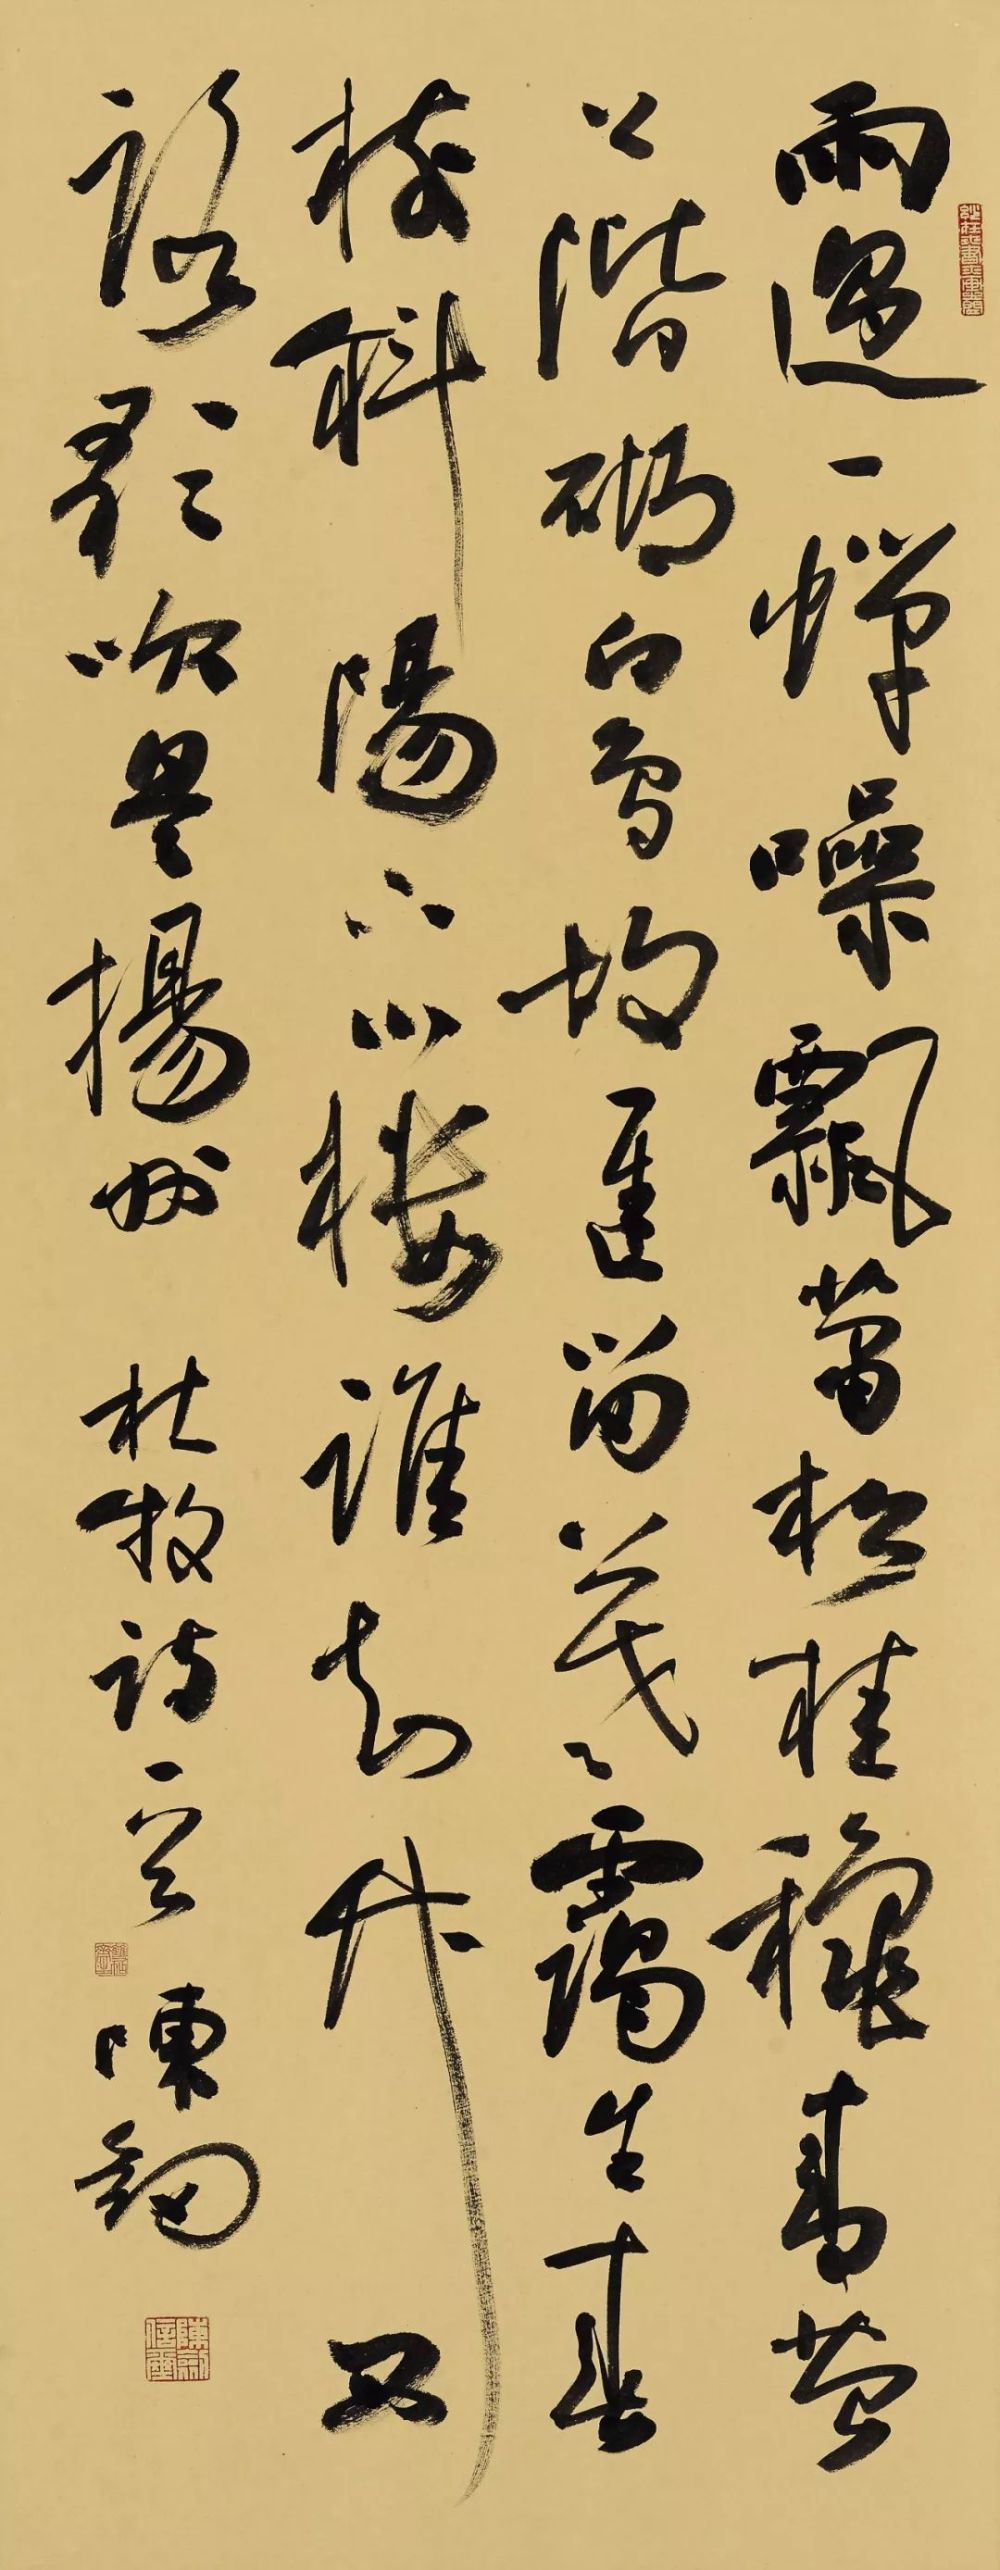 雨過一蟬噪飄蕭松桂穐青苔
階砌白鳥故遲留暮靄生
樹斜陽下小樓誰知竹西
路歌吹是揚州 杜牧詩一首 陳